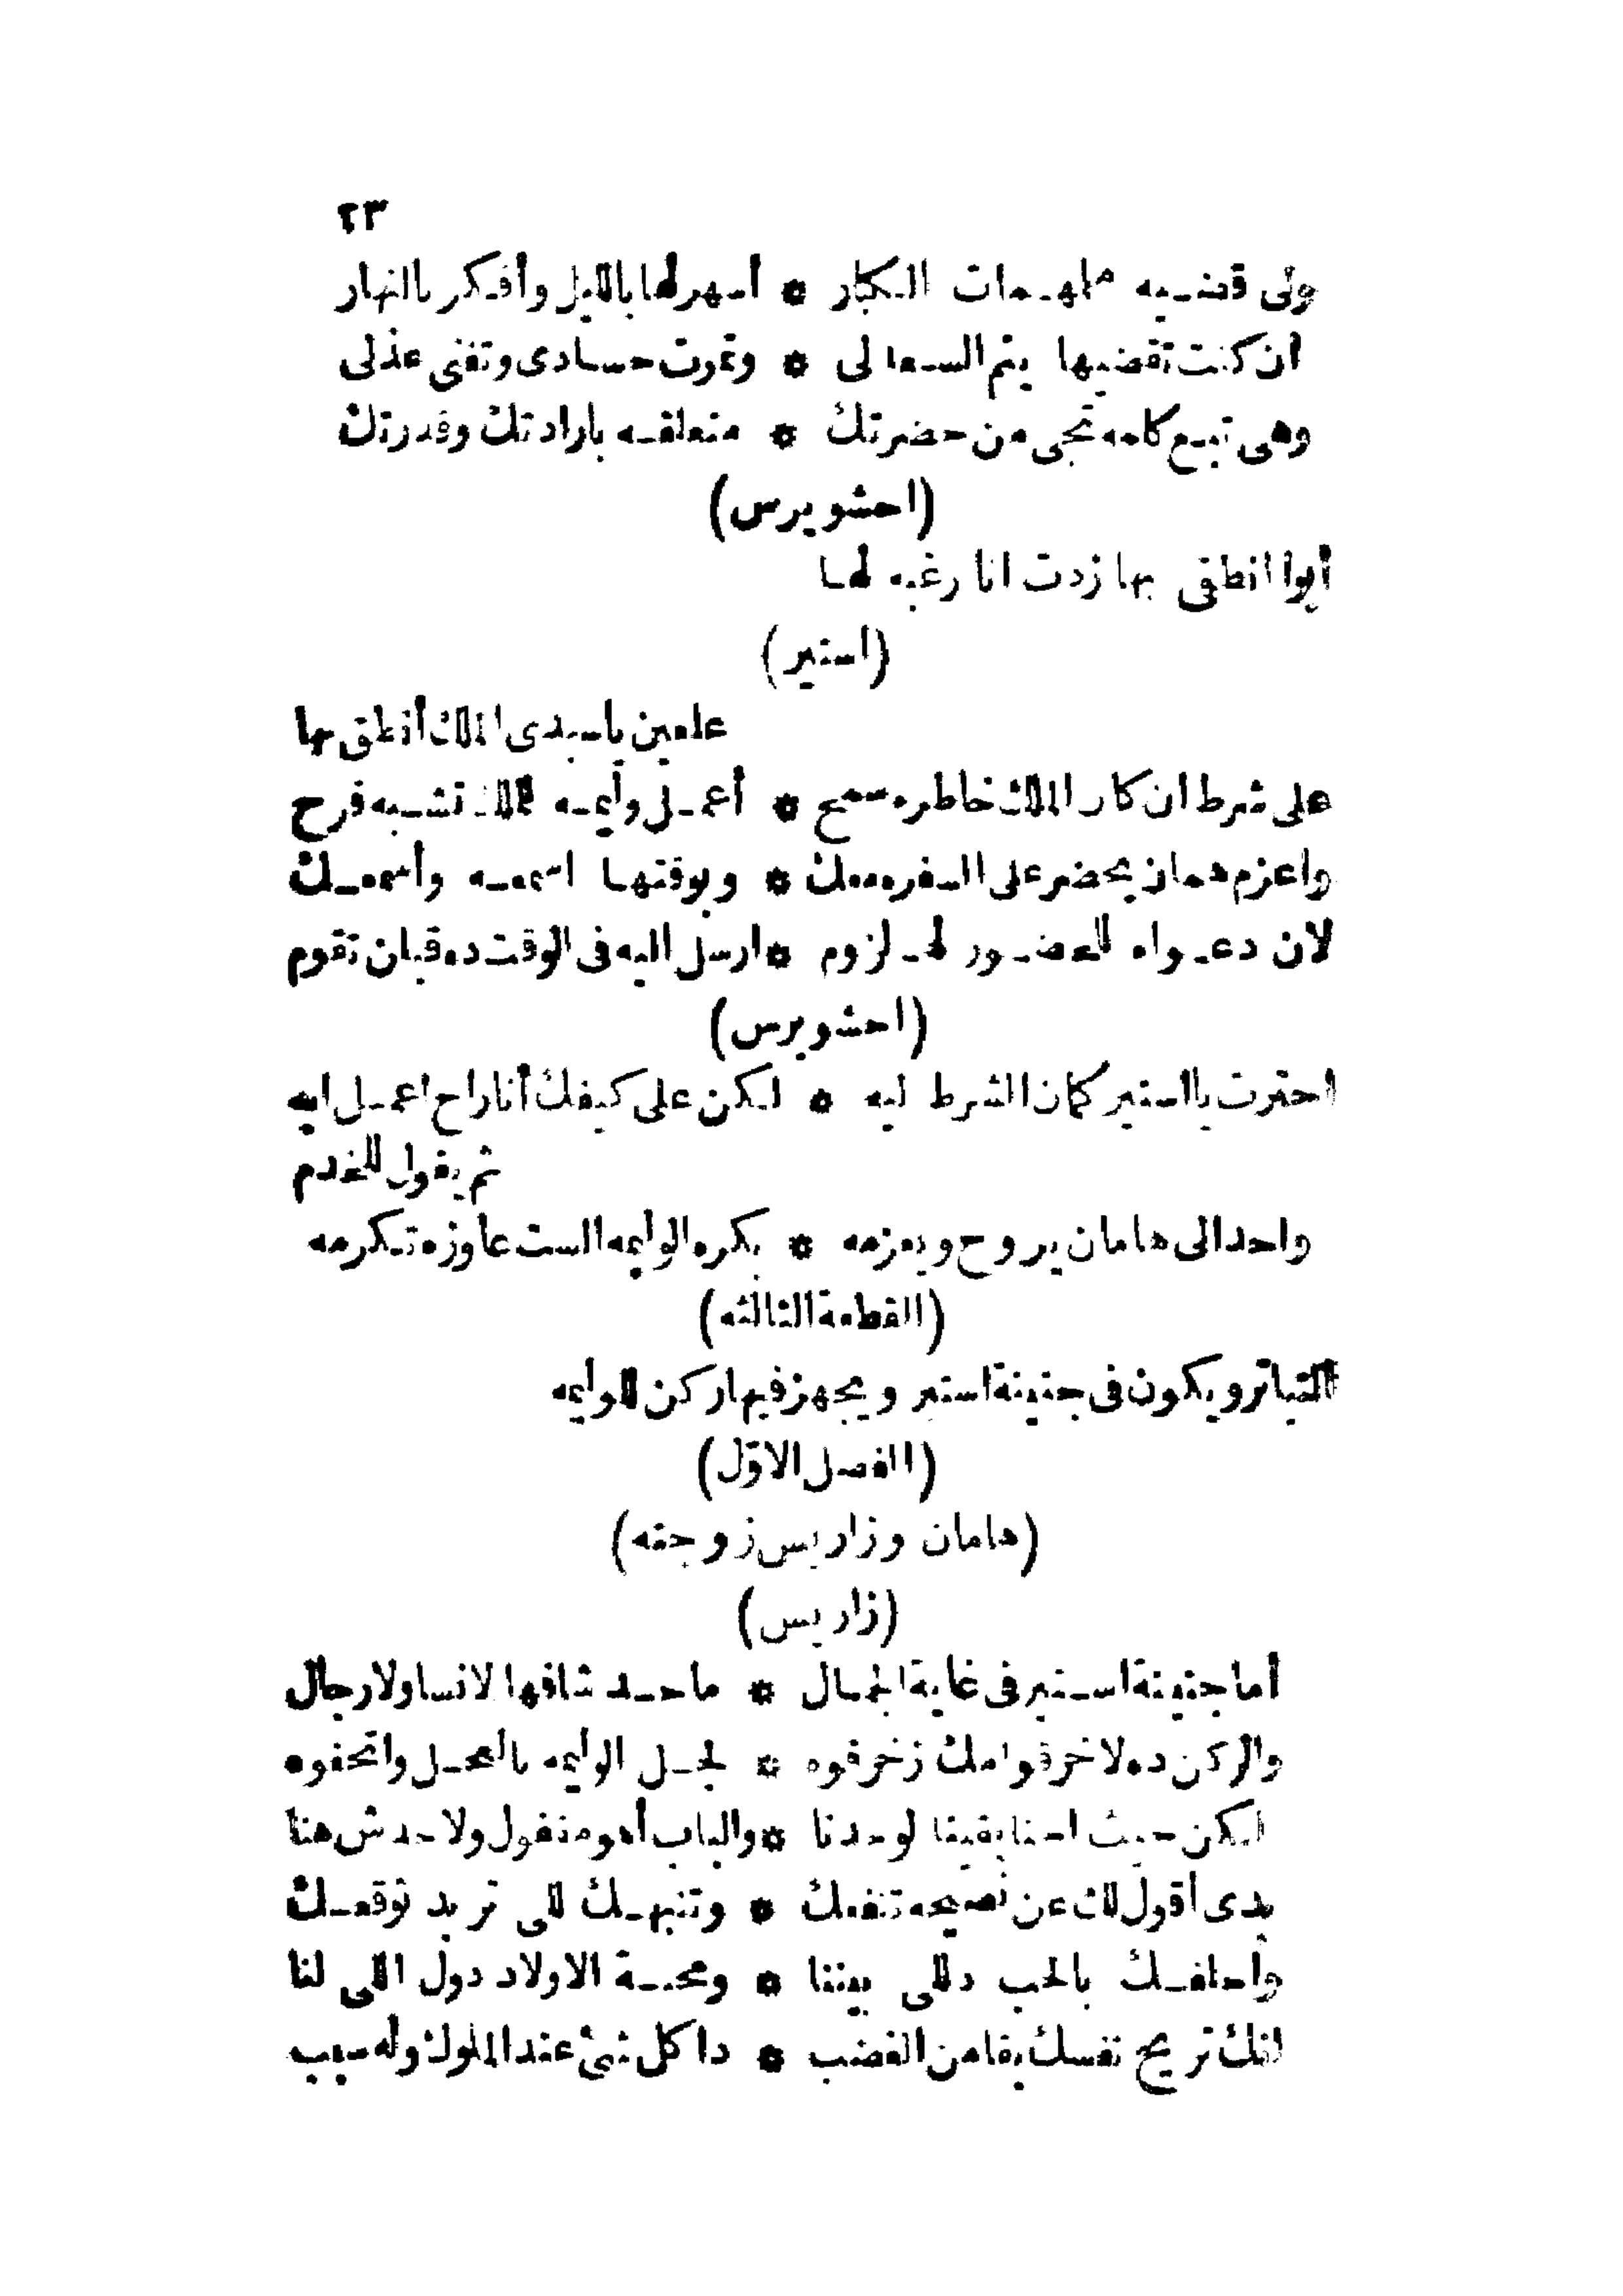 ٢٣
ولى قضيه ملهمات الكبار * أسهر لها بالليل وأفكر بالنهار
ان كنت تقضيها يتم السعا لى * وتموت حسادى وتفنى عذلى
وهى تبع كلمه تجى من حضرتك * متعلقه بارادتك وقدرتك
(احشويرس)
أيوا انطقى بها زدت انا رغبه لها
(استير)
علمين ياسيدى الملك أنطق بها
على شرط ان كان الملك خاطره سمح * أعمل وليمه لك تشبه فرح
واعزم همان يحضر على السفره معك * وبوقتها اسمعه وأسمعك
لان دعواه للحضور لها لزوم * ارسل اليه فى الوقت ده قبل ان تقوم
(احشويرس)
احترت يا استير كمان الشرط ليه * لكن على كيفك أنا راح اعمل ايه
ثم يقول للخدم
واحد الى هامان يروح ويعزمه * بكره الوليمه الست عاوزه تكرمه
(القطعة الثالثه)
التياترو يكون فى جنينة استير ويجهز فيها ركن للوليمه
(الفصل الاوّل)
(هامان وزاريس زوجته)
(زاريس)
أما جنينة استير فى غاية الجمال * ما حد شافها لا نسا ولا رجال
والركن ده لاخر قوامك زخرفوه * لجل الوليمه بالعجل واتحفوه
لكن حيث احنا بقينا لوحدنا * والباب أهو مقفول ولا حدش هنا
بدى أقول لك عن نصيحه تنفعك * وتنبهك للى تريد توقعك
واحلفك بالحب دللى بيننا * ومحبة الاولاد دول اللى لنا
انك تريح نفسك بقا من الغضب * دا كل شئ عند الملوك وله سبب